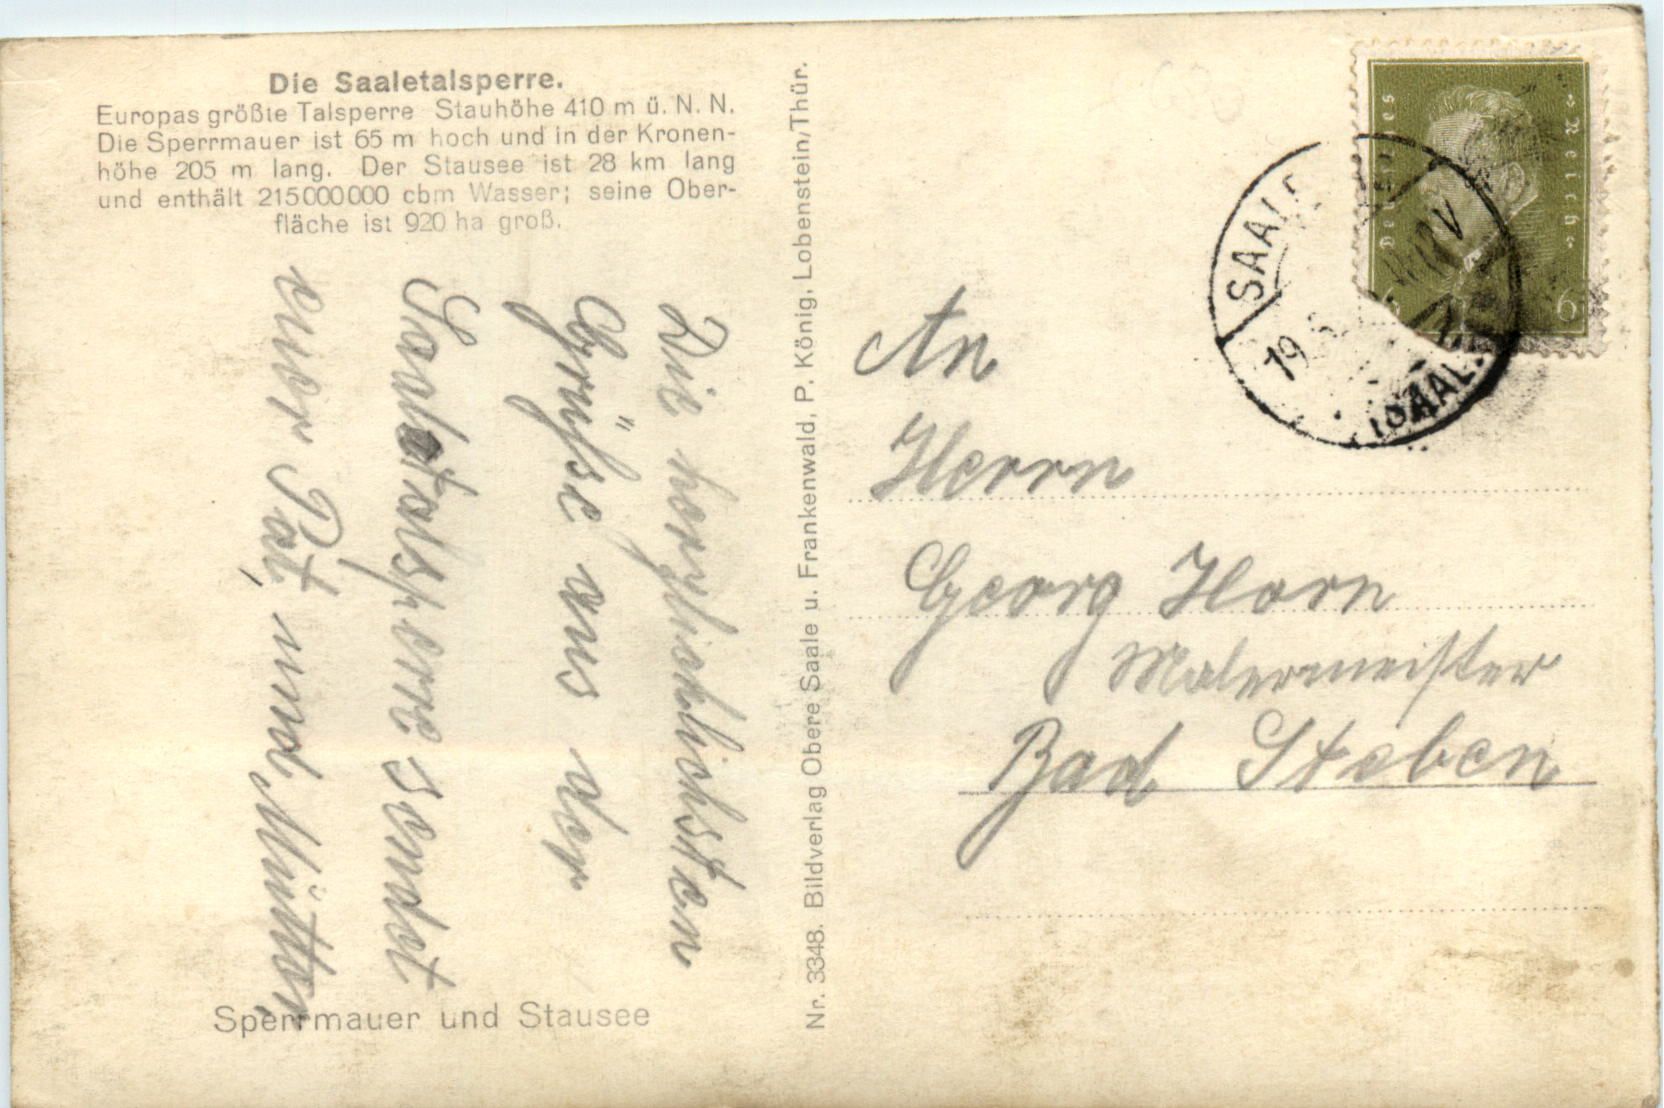 Die Saaletalsperre.
Europas größte Talsperre Stauhöhe 410 m ü. N. N.
Die Sperrmauer ist 65 m hoch und in der Kronen-
höhe 205 m lang. Der Stausee ist 28 km lang
und enthält 215000000 cbm Wasser; seine Ober-
fläche ist 920 ha groß.
Die herzlichsten
Grüsse aus der
Saaletalsperre sendet
euer Pat, und Mutter,
Sperrmauer und Stausee
Nr. 3348. Bildverlag Obere Saale u. Frankenwald, P. König, Lobenstein/Thür.
Deutsches Reich
6 6
SAAL
19
(SAAL
An
Herrn
Georg Horn
Malermeister
Bad Steben